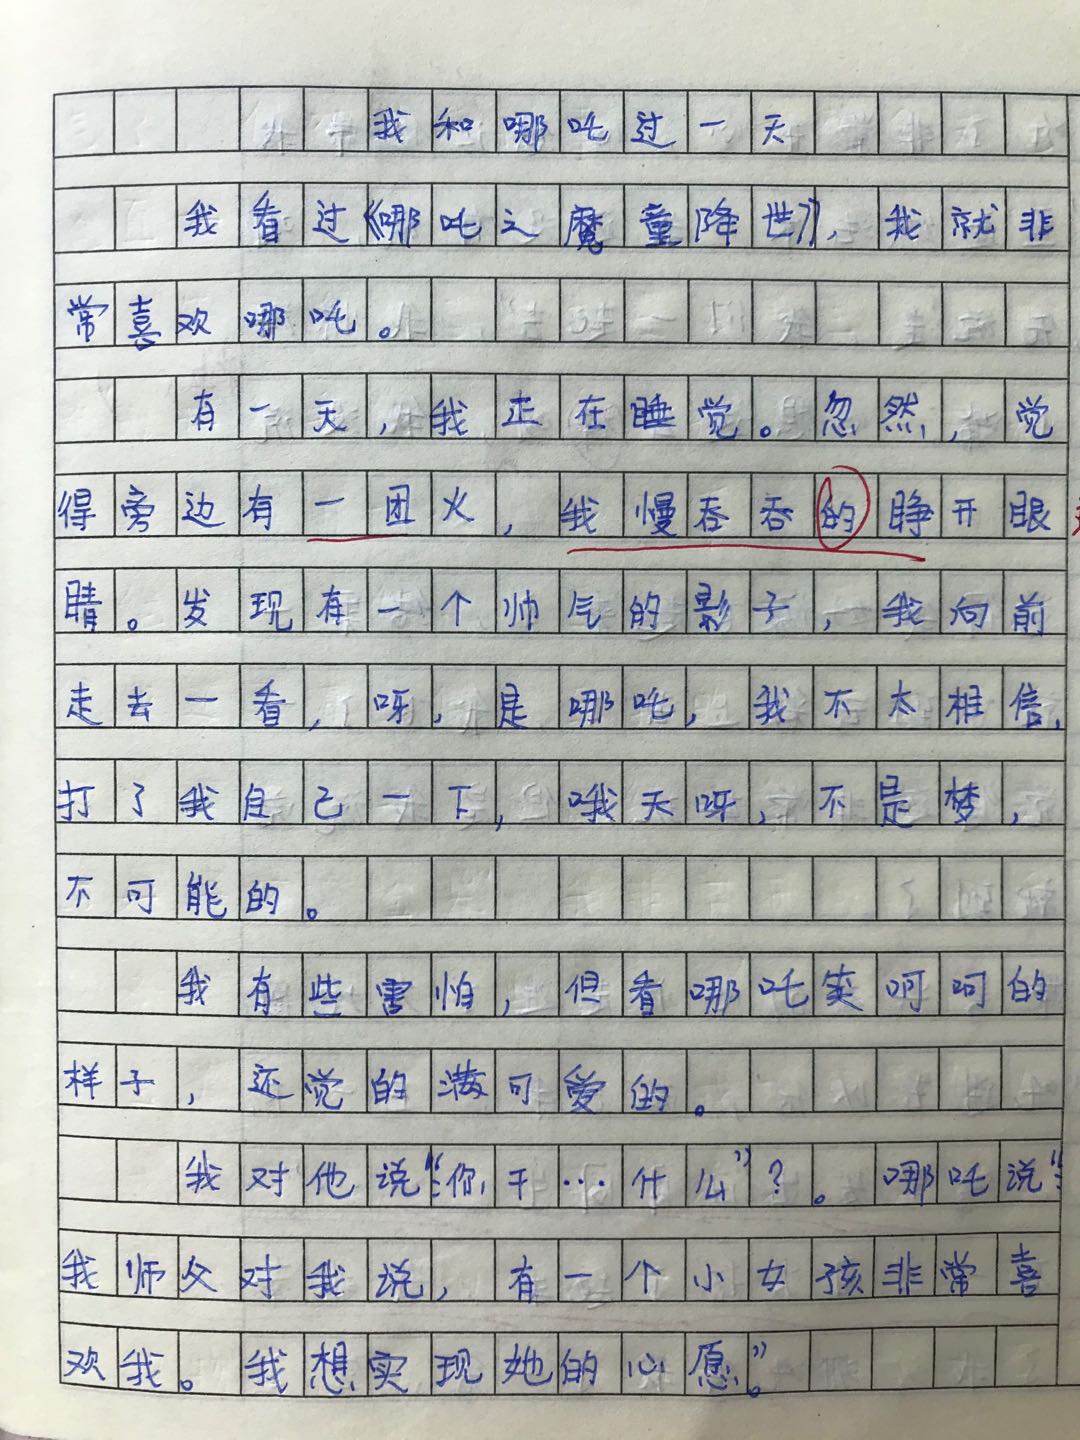 我和哪吒过一天
我看过《哪吒之魔童降世》，我就非
常喜欢哪吒。
有一天，我正在睡觉。忽然，觉
得旁边有一团火，我慢吞吞的睁开眼
睛。发现有一个帅气的影子，我向前
走去一看，呀，是哪吒，我不太相信，
打了我自己一下，哦天呀，不是梦，
不可能的。
我有些害怕，但看哪吒笑呵呵的
样子，还觉的满可爱的。
我对他说：“你干…什么”？。哪吒说：“
我师父对我说，有一个小女孩非常喜
欢我。我想实现她的心愿。”